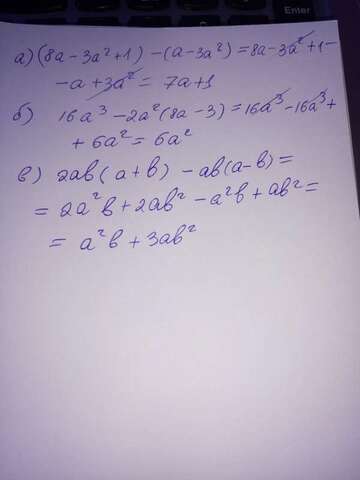 Enter
а) (8a - 3a² + 1) - (a - 3a²) = 8a - 3a² + 1 -
- a + 3a² = 7a + 1
б) 16a³ - 2a²(8a - 3) = 16a³ - 16a³ +
+ 6a² = 6a²
в) 2ab(a + b) - ab(a - b) =
= 2a²b + 2ab² - a²b + ab² =
= a²b + 3ab²